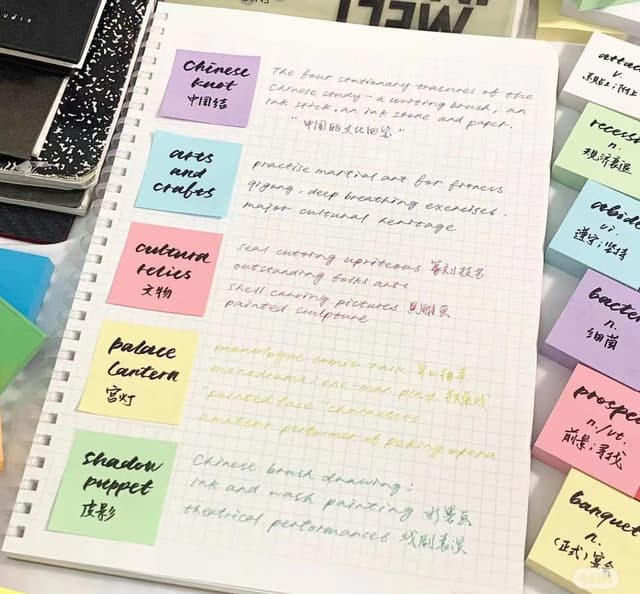 Chinese
knot
中国结
The four stationary treasures of the
Chinese study - a writing brush, an
ink stick, an ink stone and paper.
"中国的文化回答"
arts
and
crafts
practise martial art for fitness
qigong, deep breathing exercises.
major cultural heritage
cultural
relics
文物
seal cutting 篆刻技艺
outstanding folks arts
shell carving pictures 贝雕画
painted sculpture
palace
lantern
宫灯
monologue comic talk 单口相声
monodrama; one-man play 独角戏
"painted face" characters
amateur performer of peking opera
shadow
puppet
皮影
Chinese brush drawing;
ink and wash painting 水墨画
theatrical performances 戏剧表演
v.
n.
abide
vi.
遵守;坚持
n.
细菌
n./vt.
前景;寻找
banquet
n.
(正式)宴会